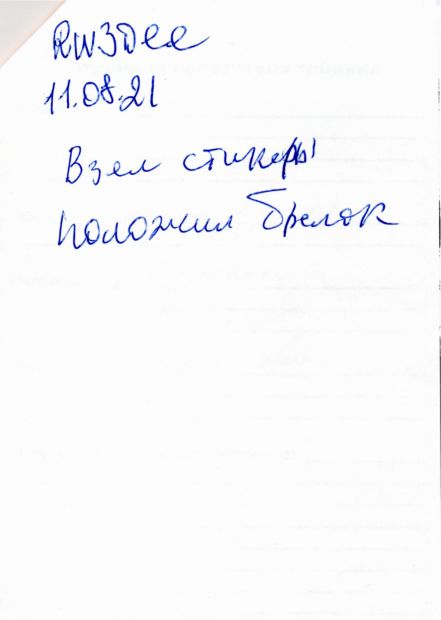 RW3DEE
11.08.21
Взел стикеры
положил брелок